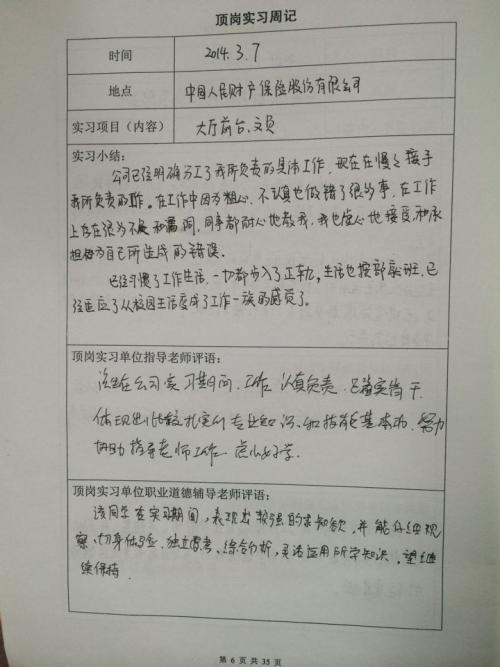 顶岗实习周记
时间 2014.3.7
地点 中国人民财产保险股份有限公司
实习项目（内容） 大厅前台、文员
实习小结：
公司已经明确分工了我所负责的具体工作，现在在慢慢接手
我所负责的工作。在工作中因为粗心、不认真也做错了很多事，在工作
上存在很多不足和漏洞，同事都耐心地教我，我也虚心地接受和承
担每为自己所造成的错误。
已经习惯了工作生活，一切都步入了正轨，生活也按部就班，已
经适应了从校园生活变成了工作一族的感觉了。
顶岗实习单位指导老师评语：
该生在公司实习期间，工作认真负责，踏实
体现出比较扎实的专业知识和技能基本功，努力
协助指导老师工作，虚心好学。
顶岗实习单位职业道德辅导老师评语：
该同学在实习期间，表现出较强的求知欲，并能仔细观
察、切身体验、独立思考、综合分析，灵活运用所学知识，望继
续保持.
第 6 页 共 35 页